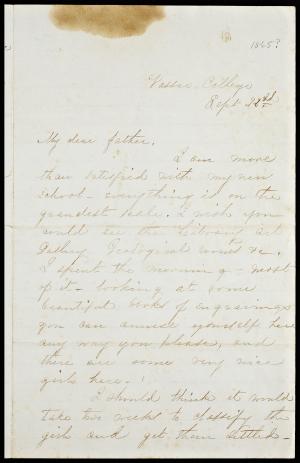 1865?
Vassar College
Sept 22nd
My dear father,
I am more
than satisfied with my new
school - everything is on the
grandest scale. I wish you
could see the Library Art
Gallery Geological rooms &c.
I spent the morning - most
of it - looking at some
beautiful books of engravings
you can amuse yourself here
any way you please, and
there are some very nice
girls here.
I should think it would
take two weeks to classify the
girls and get them settled -